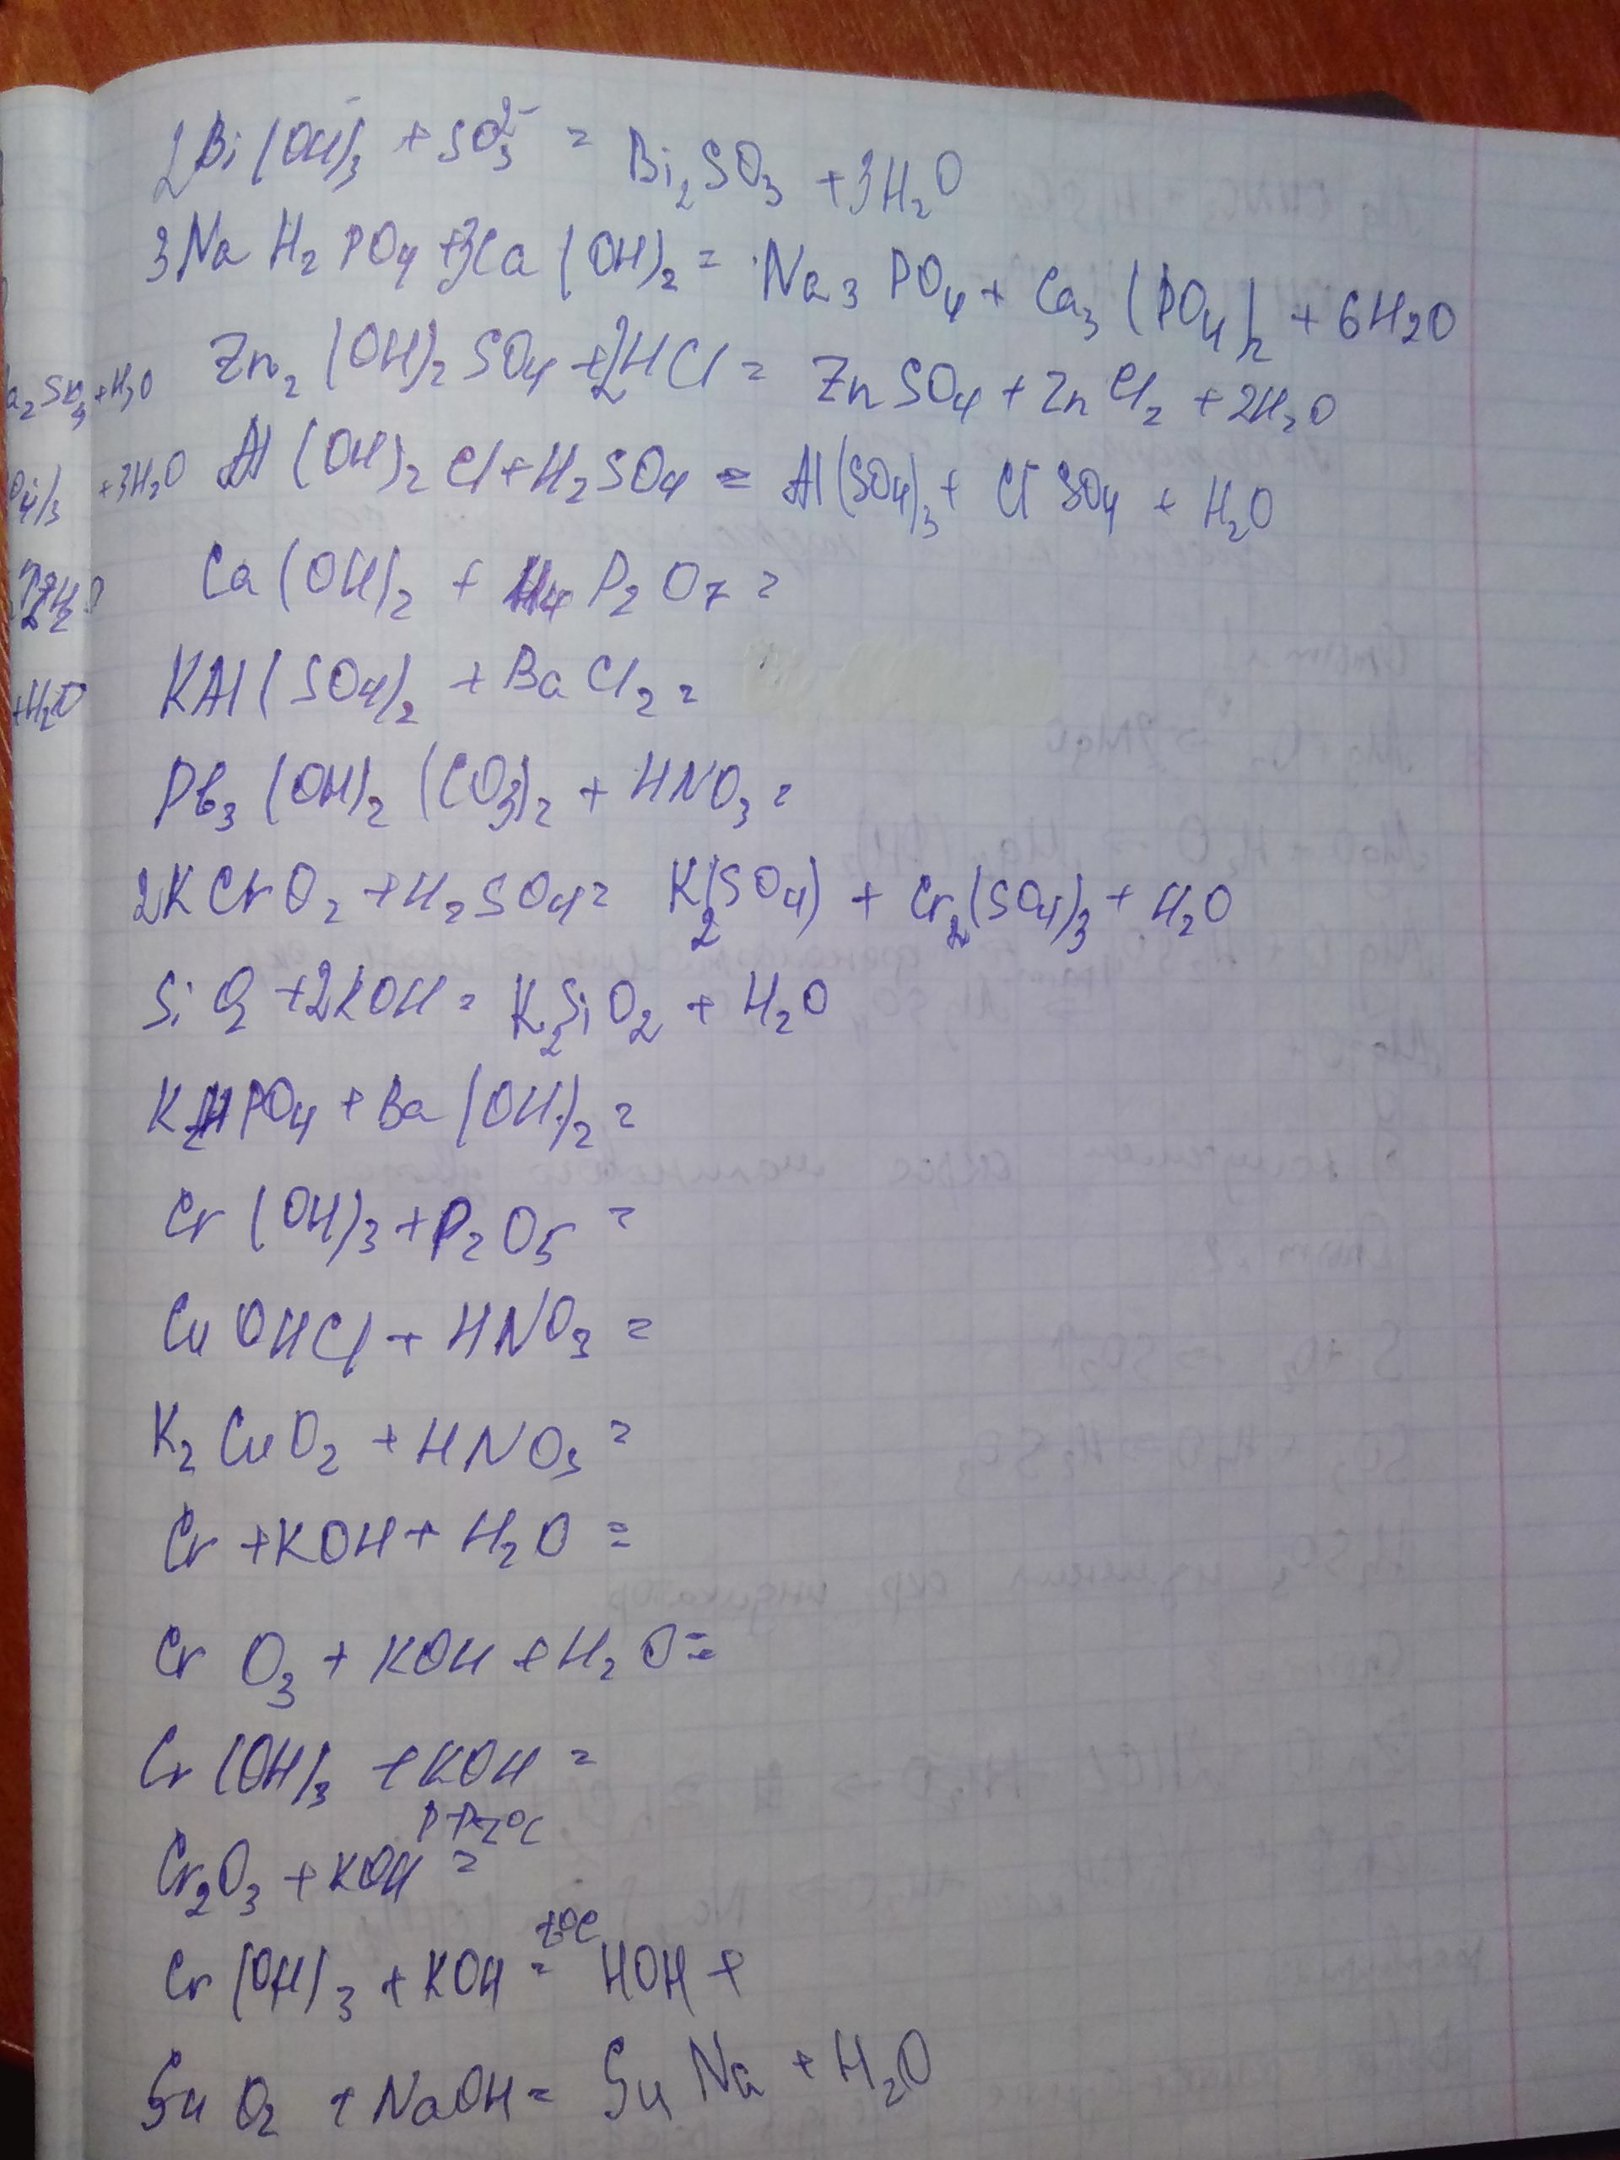 2Bi(OH)₃ + SO₃²⁻ = Bi₂SO₃ + 3H₂O
3NaH₂PO₄ + 3Ca(OH)₂ = Na₃PO₄ + Ca₃(PO₄)₂ + 6H₂O
Zn₂(OH)₂SO₄ + 2HCl = ZnSO₄ + ZnCl₂ + 2H₂O
Al(OH)₂Cl + H₂SO₄ = Al(SO₄)₃ + ClSO₄ + H₂O
Ca(OH)₂ + H₄P₂O₇ =
KAl(SO₄)₂ + BaCl₂ =
Pb₃(OH)₂(CO₃)₂ + HNO₃ =
2KCrO₂ + H₂SO₄ = K₂(SO₄) + Cr₂(SO₄)₃ + H₂O
SiO₂ + 2KOH = K₂SiO₂ + H₂O
K₂HPO₄ + Ba(OH)₂ =
Cr(OH)₃ + P₂O₅ =
CuOHCl + HNO₃ =
K₂CuO₂ + HNO₃ =
Cr + KOH + H₂O =
CrO₃ + KOH + H₂O =
Cr(OH)₃ + KOH =
Cr₂O₃ + KOH =
Cr(OH)₃ + KOH = t°C HOH +
SnO₂ + NaOH = Sn Na + H₂O
+ H₂O
+ 3H₂O
+ H₂O